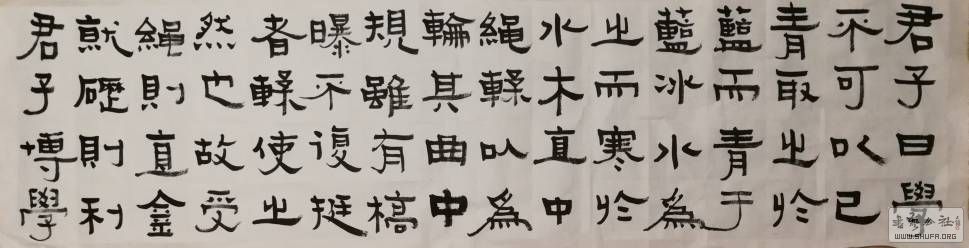 君子曰學
不可以已
青取之於
藍而青于
藍冰水為
之而寒於
水木直中
繩輮以為
輪其曲中
規雖有槁
曝不復挺
者輮使之
然也故受
繩則直金
就礪則利
君子博學
WWW.SHUFA.ORG